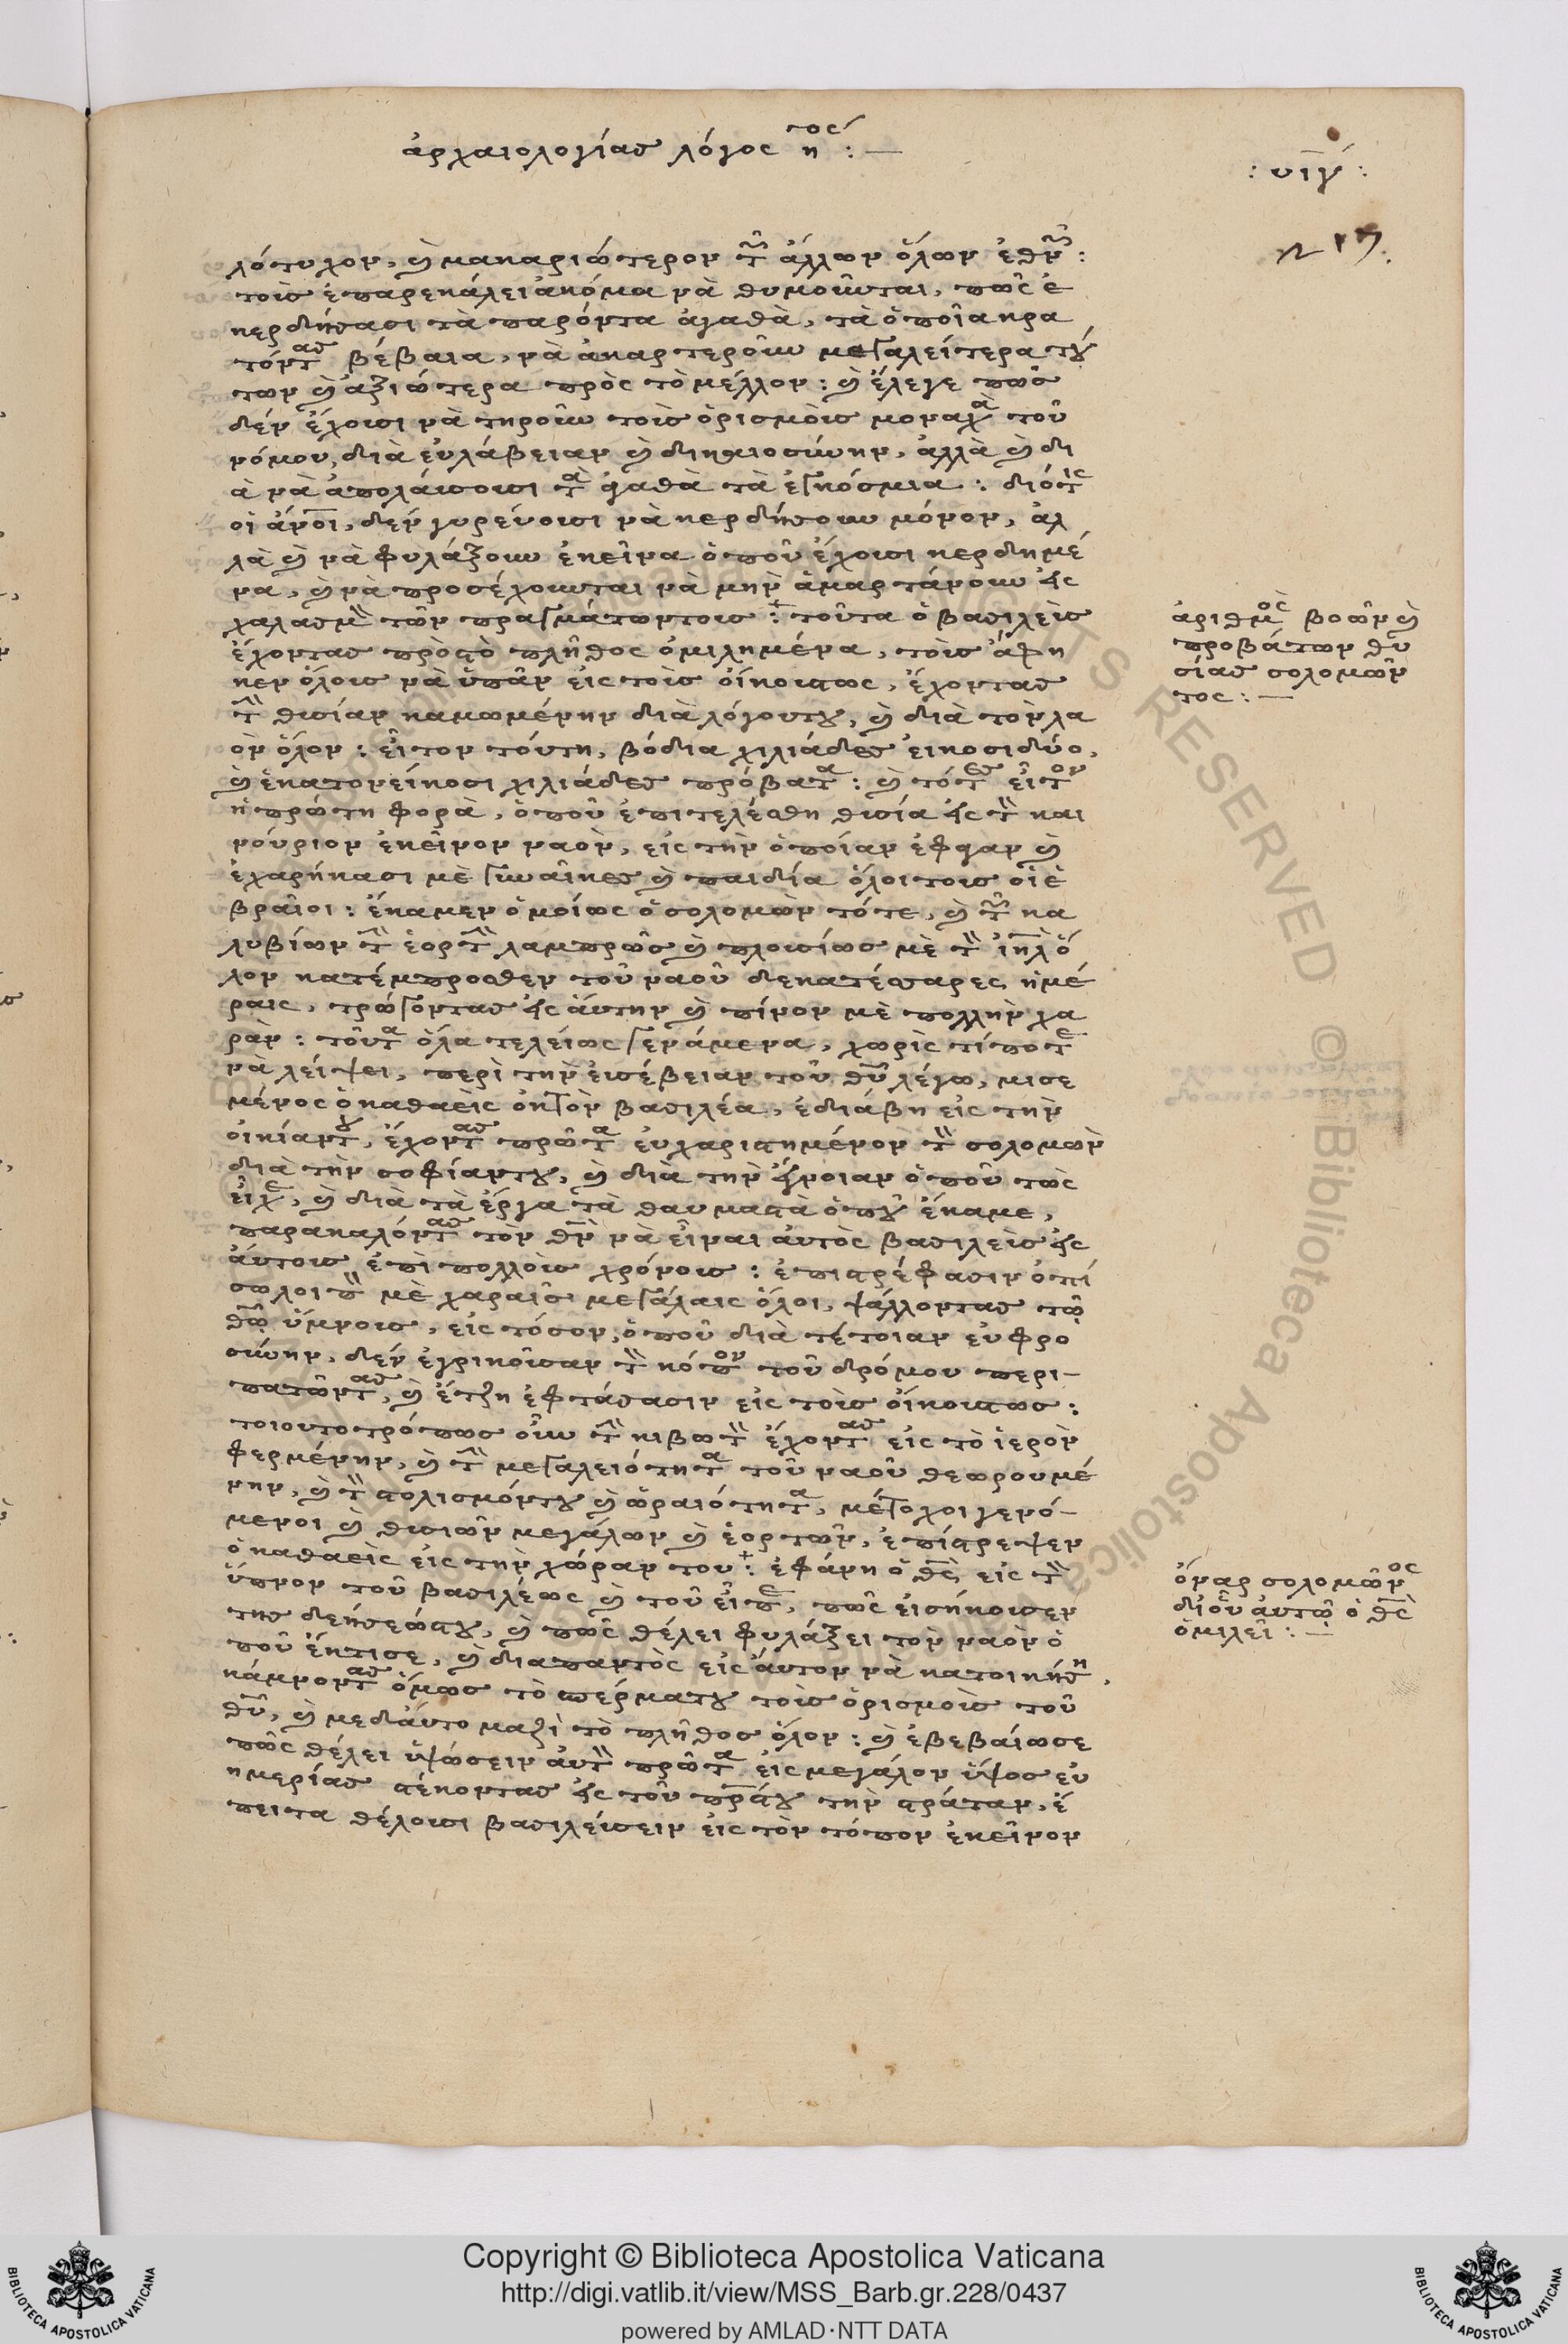 ἀρχαιολογίας λόγος η^τος :—
: υιγ :
λότυχον, καὶ μακαριώτερον τῶν ἄλλων ὅλων ἐθνῶν :
τοὺς ἐπαρεκάλει ἀκόμα νὰ θυμοῦνται, πῶς ἐ
κερδήσασι τὰ παρόντα ἀγαθὰ, τὰ ὁποῖα κρα
τόντας βέβαια, νὰ ἀκαρτεροῦν μεγαλείτερα τού
των καὶ ἀξιώτερα πρὸς τὸ μέλλον : καὶ ἔλεγε πῶς
δὲν ἔχουσι νὰ τηροῦν τοὺς ὁρισμοὺς μοναχὰ τοῦ
νόμου, διὰ εὐλάβειαν καὶ δικαιοσύνην, ἀλλὰ καὶ δι
ὰ νὰ ἀπολαύσουσι τὰ ἀγαθὰ τὰ ἐγκόσμια : διότις
οἱ ἄνοι, δὲν γυρεύουσι νὰ κερδήσουν μόνον, ἀλ
λὰ καὶ νὰ φυλάξουν ἐκεῖνα ὁποῦ ἔχουσι κερδημέ
να, καὶ νὰ προσέχουνται νὰ μὴν ἁμαρτάνουν εἰς
χαλασμὸν τῶν πραγμάτωντους : τοῦτα ὁ βασιλεὺς
ἔχοντας πρὸς τὸ πλῆθος ὁμιλημένα, τοὺς ἄφη
κεν ὅλους νὰ ὑπᾶν εἰς τοὺς οἴκουςτως, ἔχοντας
τὴν θυσίαν καμωμένην διὰ λόγουτου, καὶ διὰ τὸν λα
ὸν ὅλον : εἶτον τούτη, βόδια χιλιάδες εἰκοσιδύο,
καὶ ἑκατονείκοσι χιλιάδες πρόβατα : καὶ τότες εἶτον
ἡ πρώτη φορὰ, ὁποῦ ἐπιτελέσθη θυσία εἰς τὸν και
νούριον ἐκεῖνον ναὸν, εἰς τὴν ὁποίαν ἐφαγαν καὶ
ἐχαρήκασι μὲ γυναῖκες καὶ παιδία ὅλοι τους οἱ ἑ
βραῖοι : ἔκαμεν ὁμοίως ὁ σολομὼν τότε, καὶ τῶν κα
λυβίων τὴν ἑορτὴν λαμπρῶς καὶ πλουσίως μὲ τὸν ἰηλ ὅ
λον κατέμπροσθεν τοῦ ναοῦ δεκατέσσαρες ἡμέ
ραις, τρώγοντας εἰς αὔτην καὶ πίνον μὲ πολλὴν χα
ρὰν : τοῦτα ὅλα τελείως γενάμενα, χωρὶς τίποτε
νὰ λείψει, περὶ τὴν εὐσέβειαν τοῦ θυ λέγω, μισε
μένος ὁ καθαεὶς ὀκ τὸν βασιλέα, ἐδιάβη εἰς τὴν
οἰκίαντου, ἔχοντας πρῶτα εὐχαριστημένον τὸν σολομὼν
διὰ τὴν σοφίαντου, καὶ διὰ τὴν ἔγνοιαν ὁποῦ τως
εἶχε, καὶ διὰ τὰ ἔργα τὰ θαυμαστὰ ὁποῦ ἔκαμε,
παρακαλόντας τὸν θν νὰ εἶναι αὐτὸς βασιλεὺς εἰς
αὔτους ἐπὶ πολλοὺς χρόνους : ἐπιστρέφασιν ὀπί
σω λοιπὸν μὲ χαραῖσι μεγάλαις ὅλοι, ψάλλοντας τῷ
θῶ ὕμνους, εἰς τόσον, ὁποῦ διὰ τέτοιαν εὐφρο
σύνην, δὲν ἐγρικοῦσαν τὸν κόπον τοῦ δρόμου περι-
πατῶντας, καὶ ἔτζη ἐφτάσασιν εἰς τοὺς οἴκουςτως :
τοιουτοτρόπως οὖν τὴν κιβωτὸν ἔχοντας εἰς τὸ ἱερὸν
φερμένην, καὶ τὴν μεγαλειότητα τοῦ ναοῦ θεωρουμέ
νην, καὶ τὸν στολισμόντου καὶ ὡραιότητα, μέτοχοι γενό-
μενοι καὶ θυσιῶν μεγάλων καὶ ἑορτῶν, ἐπίστρεψεν
ὁ καθαεὶς εἰς τὴν χώραν του : ἐφάνη ὁ θς εἰς τὸν
ὕπνον τοῦ βασιλέως καὶ τοῦ εἶπε, πῶς εἰσήκουσεν
της δεήσεώςτου, καὶ πῶς θέλει φυλάξει τὸν ναὸν ὁ
ποῦ ἔκτισε, καὶ διαπαντὸς εἰς αὔτον νὰ κατοικήση,
κάμνοντας ὅμως τὸ σπέρματου τοὺς ὁρισμοὺς τοῦ
θυ, καὶ μεδαύτο μαζὶ τὸ πλῆθος ὅλον : καὶ ἐβεβαίωσε
πῶς θέλει ὑψώσειν αὐτὸν πρῶτα εἰς μεγάλον ὕψος εὐ
ημερίας στέκοντας εἰς τοῦ πρςτου τὴν στράταν, ἔ
πειτα θέλουσι βασιλεύσειν εἰς τὸν τόπον ἐκεῖνον
ἀριθμὸς βοῶν καὶ
προβάτων θυ
σίας σολομῶν
τος :—
ὄναρ σολομῶνος
δι οὗ αὐτῷ ὁ θς
ὁμιλεῖ :—
ALL RIGHTS RESERVED © Biblioteca Apostolica
Copyright © Biblioteca Apostolica Vaticana
http://digi.vatlib.it/view/MSS_Barb.gr.228/0437
powered by AMLAD·NTT DATA
BIBLIOTECA APOSTOLICA VATICANA
BIBLIOTECA APOSTOLICA VATICANA